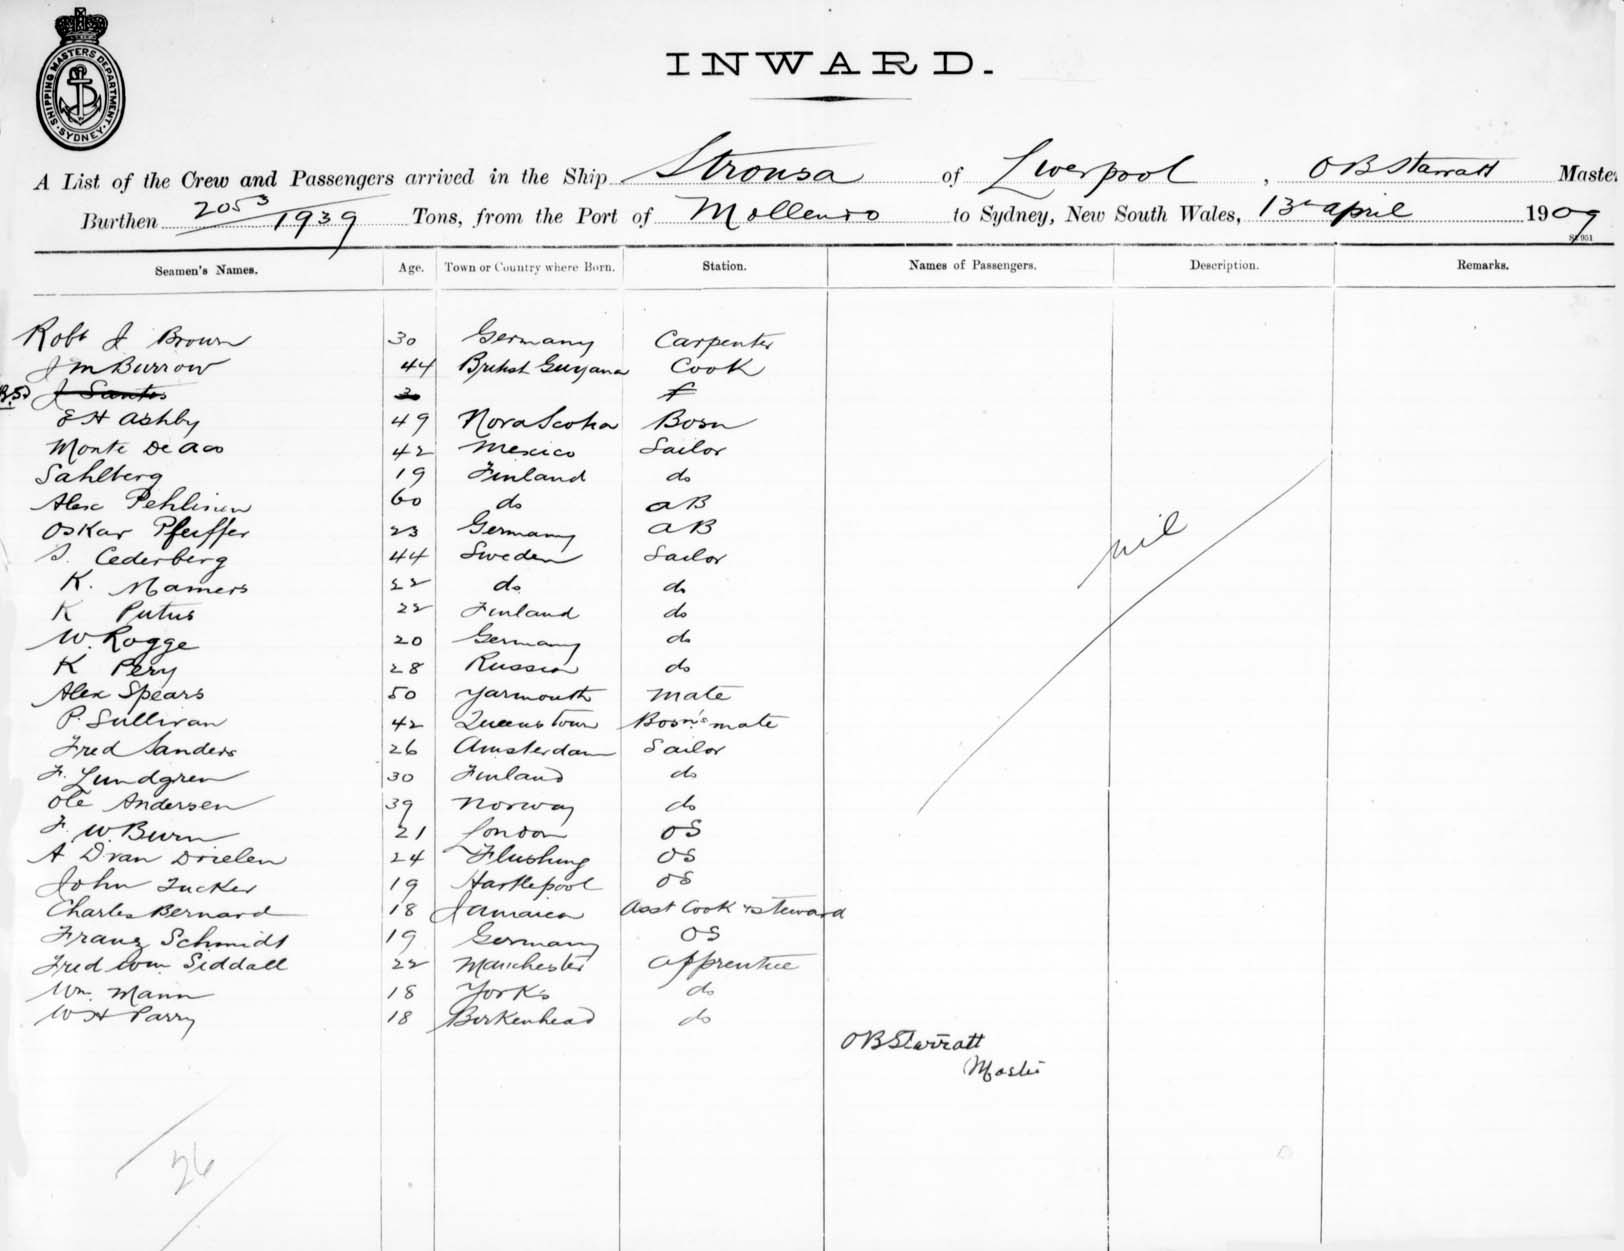 SHIPPING MASTERS DEPARTMENT
SYDNEY
INWARD.
A List of the Crew and Passengers arrived in the Ship Stronsa of Liverpool, O B Starratt Master
Burthen 2053/1939 Tons, from the Port of Mollendo to Sydney, New South Wales, 13th april 1909
Seamen's Names. Age. Town or Country where Born. Station. Names of Passengers. Description. Remarks.
Robt J Brown 30 Germany Carpenter
J M Burrow 44 British Guyana Cook
J Santos
E H Ashby 49 Nova Scotia Bosn
Monte De 42 Mexico Sailor
Sahlberg 19 Finland do
Alex Pehlinen 60 do AB
Oskar Pfeiffer 23 Germany AB
S. Cederberg 44 Sweden Sailor
nil
K. Mamers 22 do do
K Putus 22 Finland do
W. Rogge 20 Germany do
K Pery 28 Russia do
Alex Spears 50 Yarmouth Mate
P. Sullivan 42 Queenstown Bosn's mate
Fred Sanders 26 Amsterdam Sailor
F. Lundgren 30 Finland do
Ole Andersen 39 Norway do
F. W. Burn 21 London OS
A D van Drielen 24 Flushing OS
John Tucker 19 Hartlepool OS
Charles Bernard 18 Jamaica Asst Cook & Steward
Franz Schmidt 19 Germany OS
Fred Wm Siddall 22 Manchester Apprentice
Wm. Mann 18 Yorks do
W H Parry 18 Birkenhead do
O B Starratt
Master
26